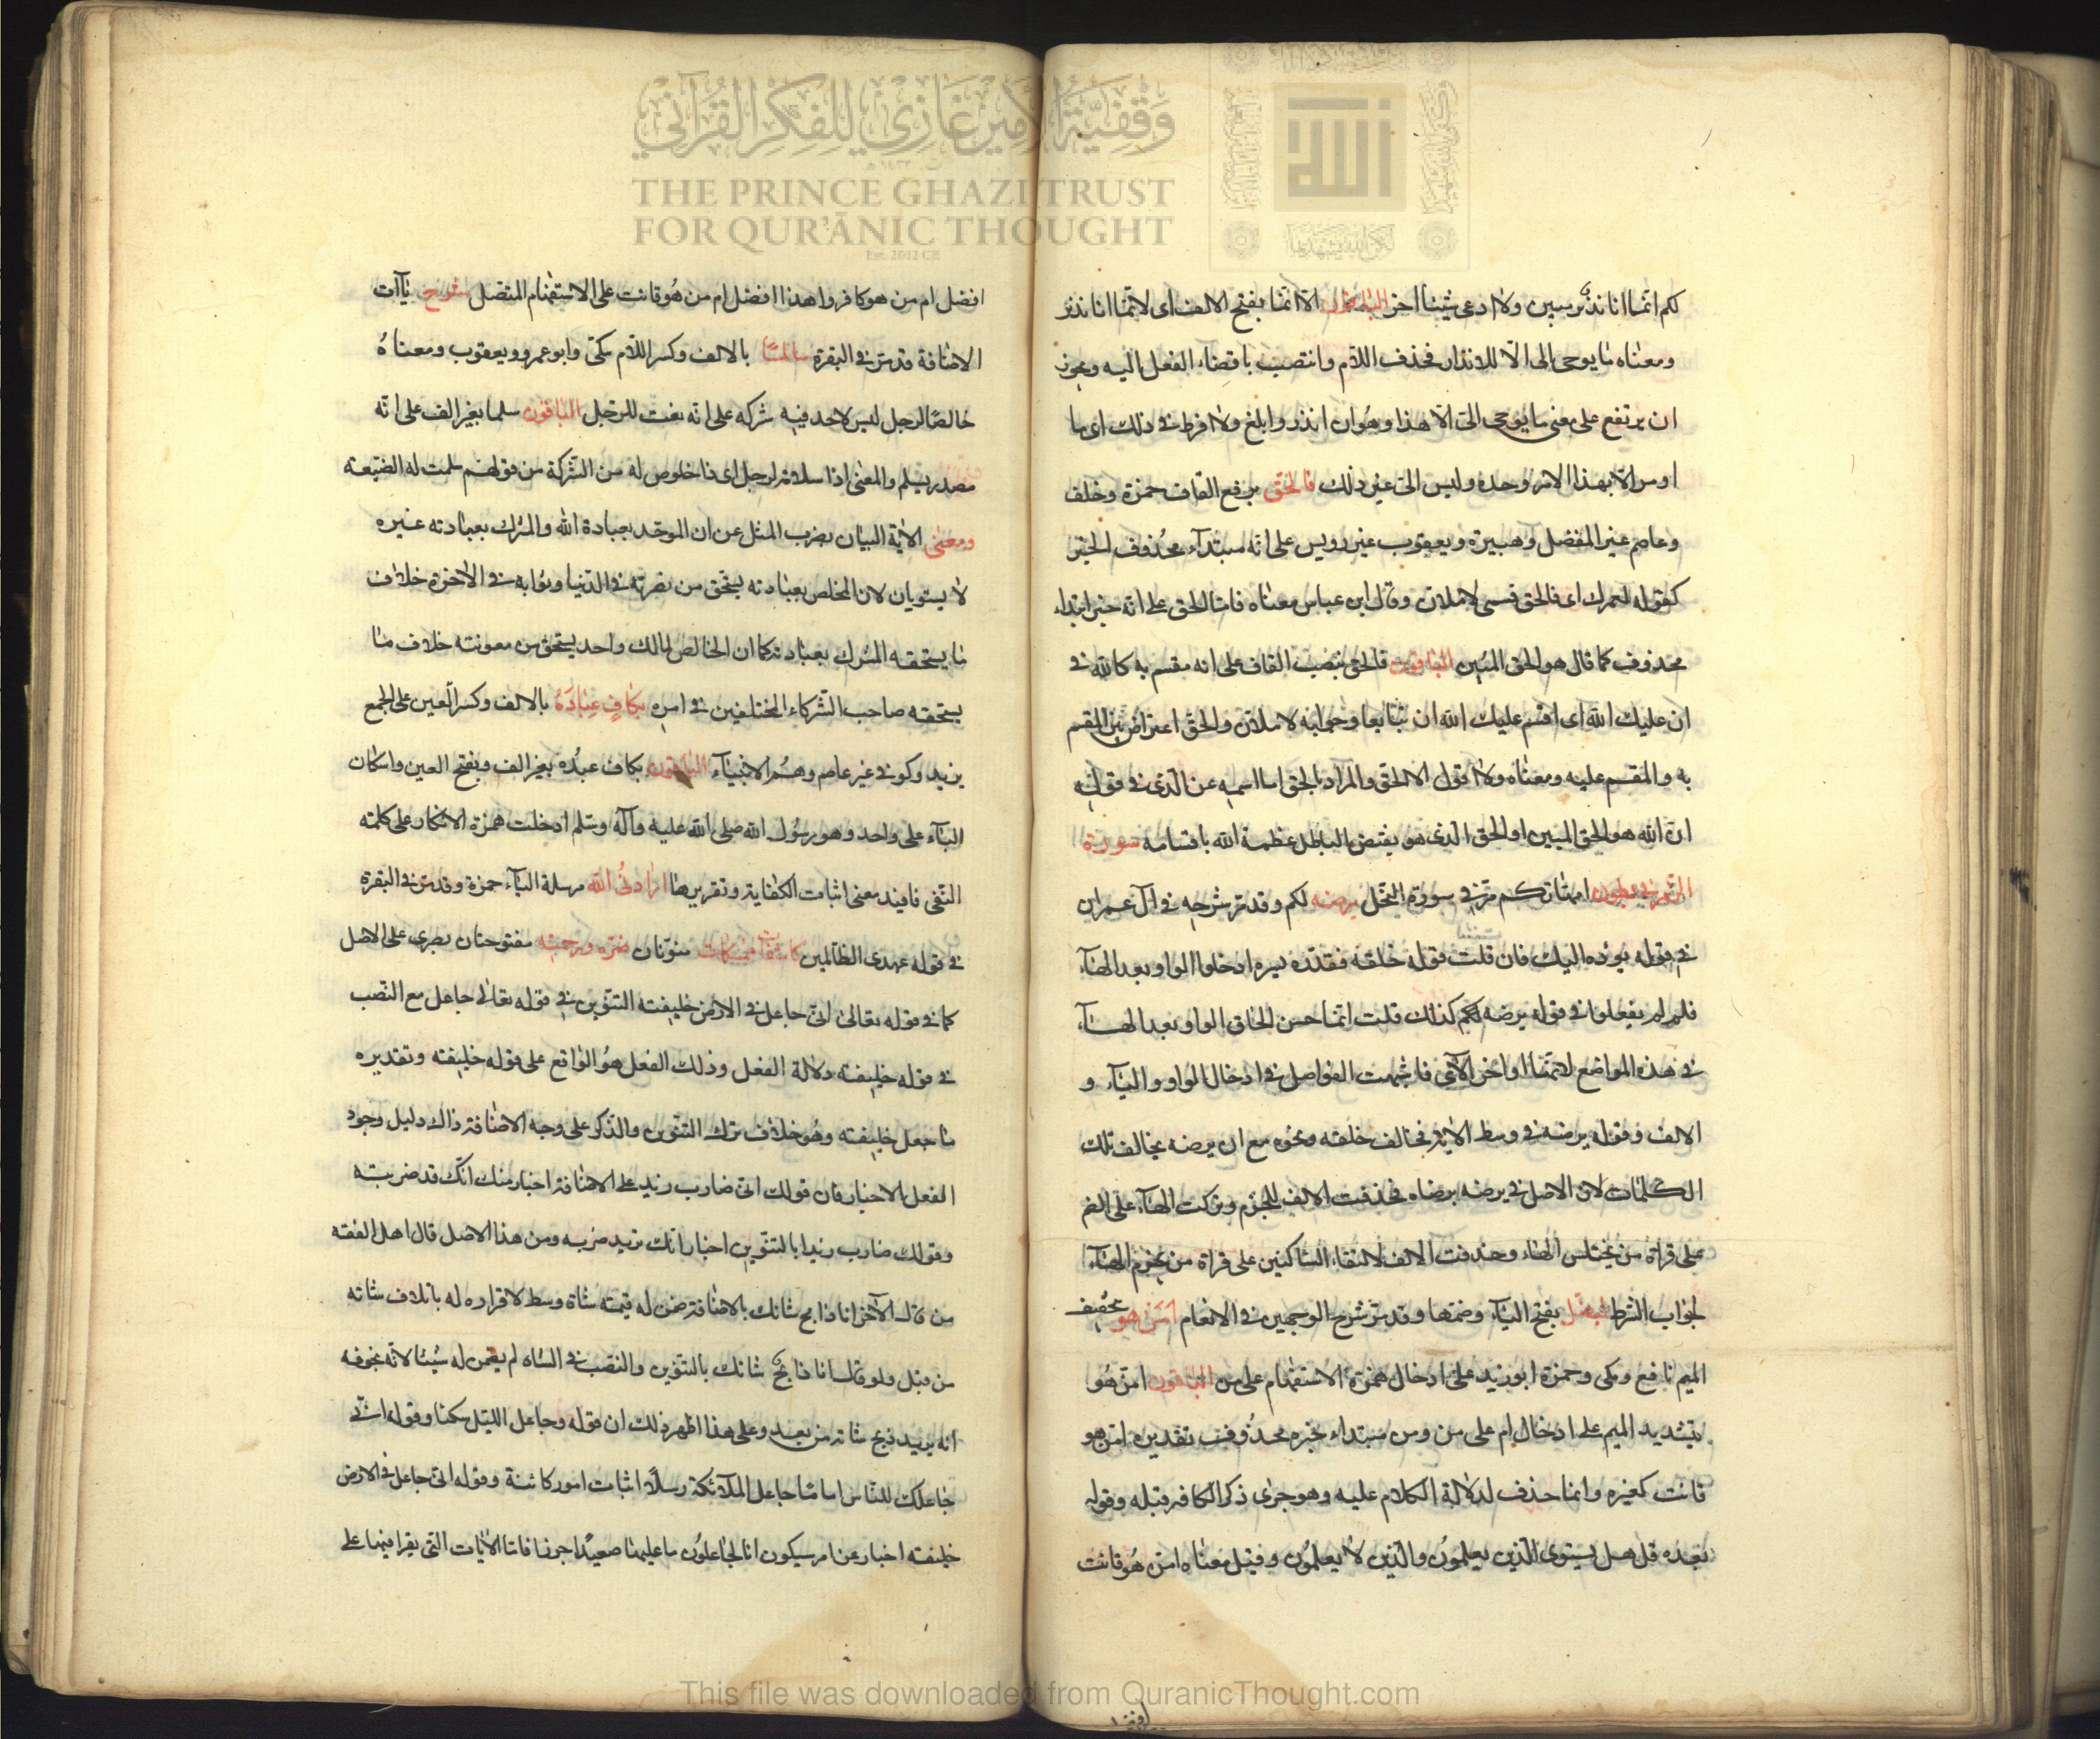 لكم انما انا نذير مبين ولا ادعى شيئا اخر الباقون الا انما بفتح الالف اى لانما انا نذير
ومعناه ما يوحى الى الا للانذار فحذف اللام وانتصب باقضاء الفعل اليه ويجوز
ان يرتفع على معنى ما يوحى الى الا هذا وهو ان انذر وابلغ ولا افرط فى ذلك اى ما
اومر الا بهذا الامر وحده وليس الى غير ذلك فالحق برفع القاف حمزة وخلف
وعاصم غير المفضل وهبيرة ويعقوب غير رويس على انه مبتداء محذوف الخبر
كقوله لعمرك اى فالحق قسمى لاملان وقال ابن عباس معناه فانا الحق على انه خبر ابتداء
محذوف كما قال هو الحق المبين الباقون فالحق بنصب القاف على انه مقسم به كالله فى
ان عليك الله اى اقسم عليك الله ان تبايعا وجوابه لاملان والحق اعتراض بين المقسم
به والمقسم عليه ومعناه ولا اقول الا الحق والمراد بالحق اما اسمه عن الذى فى قوله
ان الله هو الحق المبين او الحق الذى هو نقيض الباطل عظمة الله باقسامه سورة
الزمر فى بطون امهاتكم مر فى سورة النحل يرضه لكم وقد مر شرحه فى ال عمران
فى قوله يوده اليك فان قلت قوله خلقه فقدره يسره ادخلوا الواو بعد الهاء
فلم لم يفعلوا فى قوله يرضه لكم كذلك قلت انما حسن الحاق الواو بعد الهاء
فى هذه المواضع لانها اواخر الآى فاشبهت الفواصل فى ادخال الواو والياء و
الالف وقوله يرضه فى وسط الاية فخالف خلقه ونحوه مع ان يرضه يخالف تلك
الكلمات لان الاصل فى يرضه يرضاه فحذفت الالف للجزم وتركت الهاء على الضم
على قراة من يختلس الهاء وحذفت الالف لالتقاء الساكنين على قراة من يجزم الهاء
لجواب الشرط ليضل بفتح الياء وضمها وقد مر شرح الوجهين فى الانعام امن هو بتخفيف
الميم نافع ومكى وحمزة ابو زيد على ادخال همزة الاستفهام على من الباقون امن هو
بتشديد الميم على ادخال ام على من ومن مبتداء خبره محذوف تقديره امن هو
قانت كغيره وانما حذف لدلالة الكلام عليه وهو جرى ذكر الكافر قبله وقوله
بعده قل هل يستوى الذين يعلمون والذين لا يعلمون وقيل معناه امن هو قانت
افضل
افضل ام من هو كافر واهذا افضل ام من هو قانت على الاستفهام المتصل شرح ياآت
الاضافة قد مر فى البقرة سالما بالالف وكسر اللام مكى وابو عمرو ويعقوب ومعناه
خالصا لرجل ليس لاحد فيه شركه على انه نعت للرجل الباقون سلما بغير الف على انه
مصدر يسلم والمعنى اذا سلامة لرجل اى ذا خلوص له من الشركة من قولهم سلمت له الضيعه
ومعنى الاية البيان بضرب المثل عن ان الموحد بعبادة الله والمشرك بعبادته غيره
لا يستويان لان المخلص بعبادته يستحق من نصرته فى الدنيا وثوابه فى الاخرة خلاف
ما يستحقه المشرك بعبادته كما ان الخالص لمالك واحد يستحق من معونته خلاف ما
يستحقه صاحب الشركاء المختلفين فى امره بكاف عباده بالالف وكسر العين على الجمع
يزيد وكوفى غير عاصم وهم الانبياء الباقون بكاف عبده بغير الف وبفتح العين واسكان
الباء على واحد وهو رسول الله صلى الله عليه وآله وسلم ادخلت همزة الانكار على كلمة
النفى فافيد معنى اثبات الكفاية وتقريرها ارادنى الله مرسلة الياء حمزة وقد مر فى البقرة
فى قوله عهدى الظالمين كاشفات ممسكات منونان ضره ورحمته مفتوحتان بصرى على الاصل
كما فى قوله تعالى انى جاعل فى الارض خليفته التنوين فى قوله تعالى جاعل مع النصب
فى قوله خليفته دلالة الفعل وذلك الفعل هو الواقع على قوله خليفته وتقديره
ما جعل خليفته وهو خلاف ترك التنوين والذكر على وجه الاضافة ذاك دليل وجود
الفعل الاخبار فان قولك انى ضارب زيد على الاضافة اخبار منك انك قد ضربته
وقولك ضارب زيدا بالتنوين اخبار انك تريد ضربه ومن هذا الاصل قال اهل الفقه
من قال لآخر انا ذابح شاتك بالاضافة ضمن له قيمته شاة وسط لاقراره له باتلاف شاته
من قبل ولو قال انا ذابح شاتك بالتنوين والنصب فى الشاه لم يضمن له شيئا لانه يخوفه
انه يريد ذبح شاته من بعد وعلى هذا اظهر ذلك ان قوله وجاعل الليل سكنا وقوله انى
جاعلك للناس اماما جاعل الملآئكة رسلا اثبات امور كائنة وقوله انى جاعل فى الارض
خليفته اخبار عن امر سيكون انا لجاعلون ما عليها صعيدا جرزا فاما الايات التى يقرا فيها على
وقفية الأمير غازي للفكر القرآني
THE PRINCE GHAZI TRUST
FOR QUR'ĀNIC THOUGHT
Est. 2012 CE
This file was downloaded from QuranicThought.com